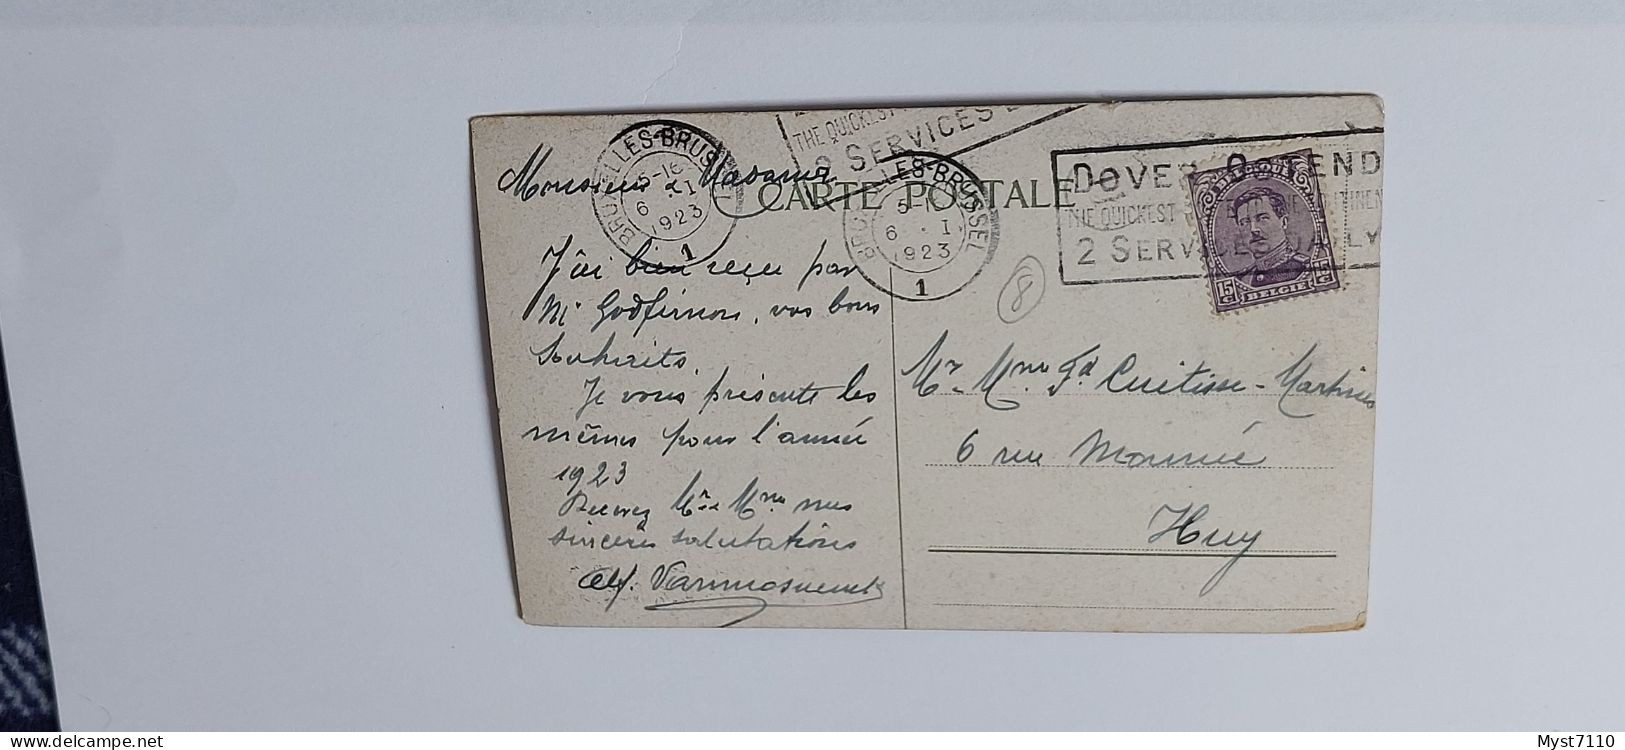 THE QUICKEST
2 SERVICES
BRUXELLES-BRUSSEL
15-16
6 . I
1923
1
LES-BRUSSEL
6 . I
1923
1
DOVER OSTEND
THE QUICKEST
2 SERVICES DAILY
BELGIE
15 C
15 C
CARTE POSTALE
Monsieur & Madame
J'ai bien reçu par
Mr Godfirnon, vos bons
souhaits.
Je vous présente les
mêmes pour l'année
1923
Recevez Mr & Mme mes
sincères salutations
Alf.
8
Mr. Mme Fd Martinis
6 rue
Huy
delcampe.net
Myst7110